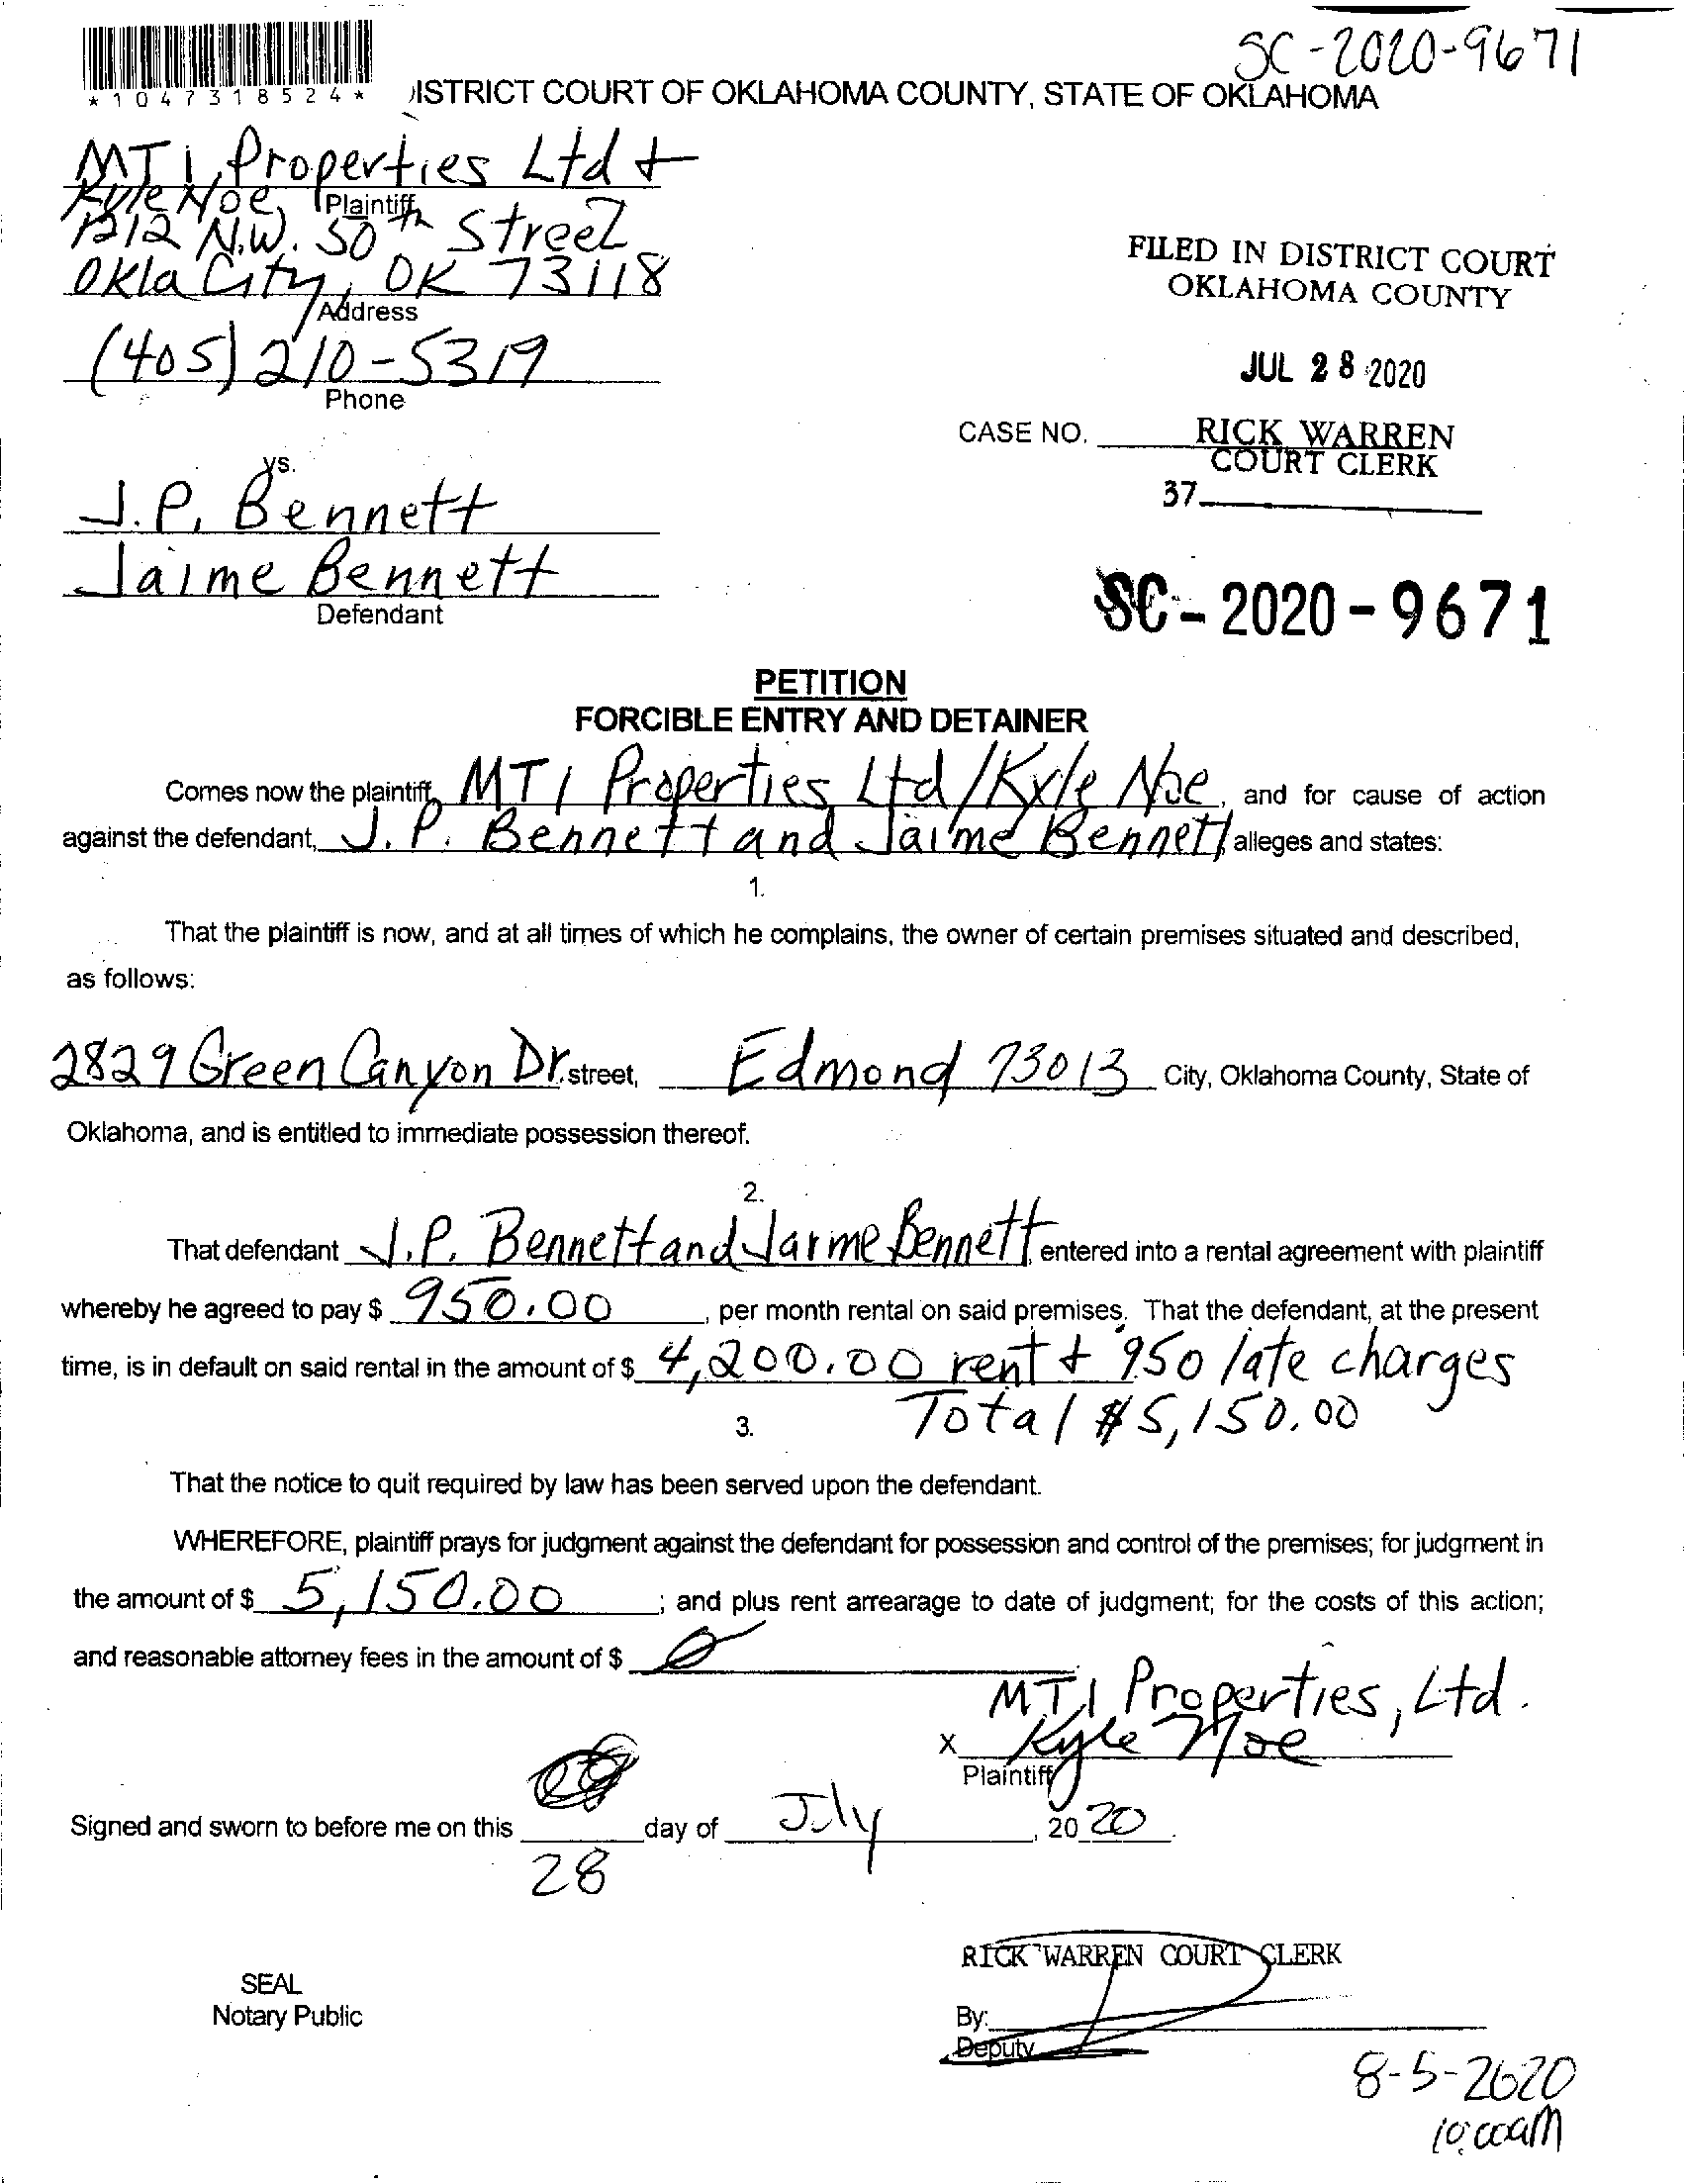 SC-2020-9671
*1047318524*
ISTRICT COURT OF OKLAHOMA COUNTY, STATE OF OKLAHOMA
MTI Properties Ltd +
Kyle Noe
Plaintiff
1212 N.W. 50th Street
Okla City, OK 73118
Address
(405) 210-5319
Phone
FILED IN DISTRICT COURT
OKLAHOMA COUNTY
JUL 28 2020
CASE NO. RICK WARREN
COURT CLERK
37
vs.
J.P. Bennett
Jaime Bennett
Defendant
SC-2020-9671
PETITION
FORCIBLE ENTRY AND DETAINER
Comes now the plaintiff, MTI Properties Ltd/Kyle Noe, and for cause of action
against the defendant, J.P. Bennett and Jaime Bennett alleges and states:
1.
That the plaintiff is now, and at all times of which he complains, the owner of certain premises situated and described,
as follows:
2829 Green Canyon Dr. street, Edmond 73013 City, Oklahoma County, State of
Oklahoma, and is entitled to immediate possession thereof.
2.
That defendant J.P. Bennett and Jaime Bennett entered into a rental agreement with plaintiff
whereby he agreed to pay $ 950.00, per month rental on said premises. That the defendant, at the present
time, is in default on said rental in the amount of $ 4,200.00 rent + 950 late charges
Total $5,150.00
3.
That the notice to quit required by law has been served upon the defendant.
WHEREFORE, plaintiff prays for judgment against the defendant for possession and control of the premises; for judgment in
the amount of $ 5,150.00; and plus rent arrearage to date of judgment; for the costs of this action;
and reasonable attorney fees in the amount of $ 0
MTI Properties, Ltd.
X Kyle Noe
Plaintiff
Signed and sworn to before me on this day of July, 2020.
28
RICK WARREN COURT CLERK
SEAL
Notary Public
By:
Deputy
8-5-2020
10:00am